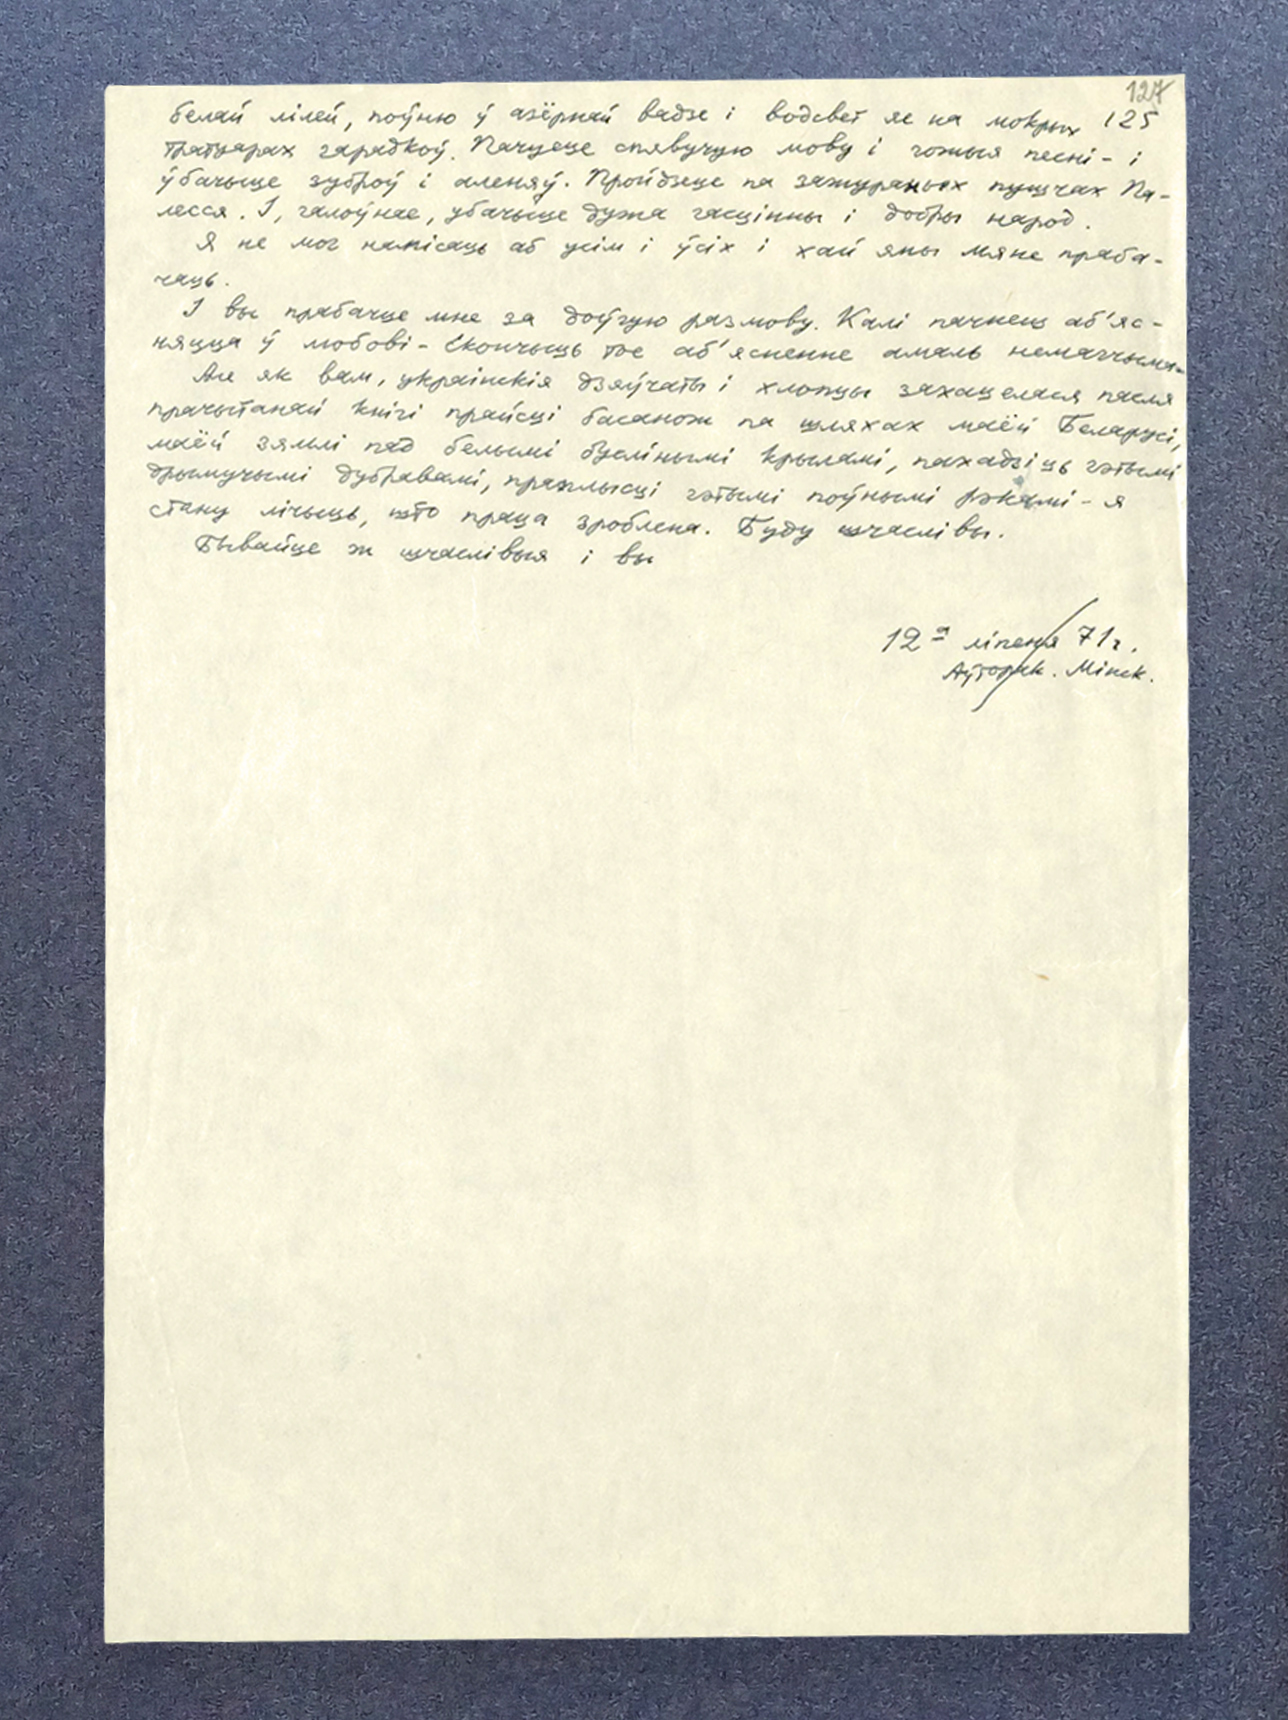 127
125
белай лілей, поўню ў азёрнай вадзе і водсвет яе на мокрых
тратуарах гарадкоў. Пачуеце спявучую мову і гожыя песні - і
ўбачыце зуброў і аленяў. Пройдзеце па зажураных пушчах Па-
лесся. І, галоўнае, убачыце дужа гасцінны і добры народ.
Я не мог напісаць аб усім і ўсіх і хай яны мяне праба-
чаць.
І вы прабачце мне за доўгую размову. Калі пачнеш аб'яс-
няцца ў любові - скончыць тое аб'ясненне амаль немагчыма.
Але як вам, украінскія дзяўчаты і хлопцы захацелася пасля
прачытанай кнігі прайсці басанож па шляхах маёй Беларусі,
маёй зямлі пад белымі буслінымі крыламі, пахадзіць гэтымі
дрымучымі дубравамі, праплысці гэтымі поўнымі рэкамі - я
стану лічыць, што праца зроблена. Буду шчаслівы.
Бывайце ж шчаслівыя і вы
12га ліпеня 71 г.
Аўторак. Мінск.